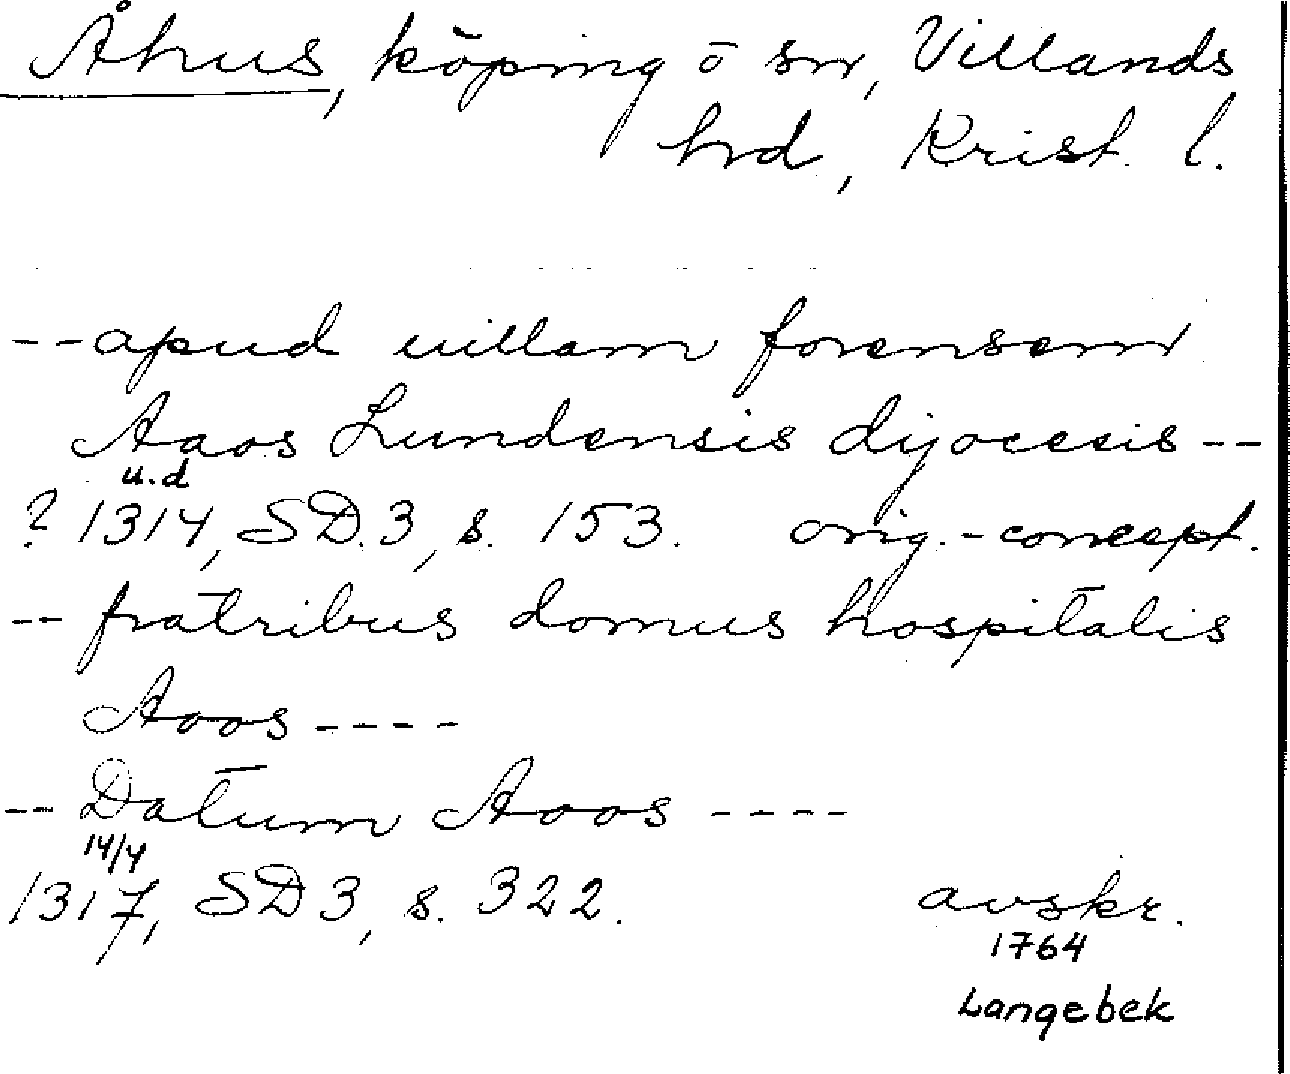 Åhus, köping o sn, Villands
hrd, Krist. l.
-- apud uillam forensem
Aaos Lundensis dyocesis --
u.d
? 1314, SD. 3, s. 153. orig.-concept.
-- fratribus domus hospitalis
Aoos ----
-- Datum Aoos ----
14/4
1317, SD 3, s. 322. avskr.
1764
Langebek